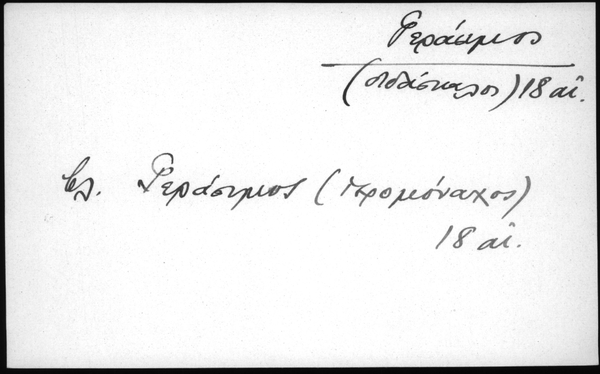 Γεράσιμος
(διδάσκαλος) 18 αἰ.
Βλ. Γεράσιμος (ἱερομόναχος)
18 αἰ.